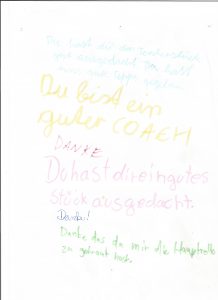 Du hast dir ein Theaterstück
gut ausgedacht Du hast
Du bist ein
guter COACH
DANKE
Du hast dir ein gutes
stück ausgedacht.
Danke!
Danke das du mir die Hauptrolle
zu getraut hast.